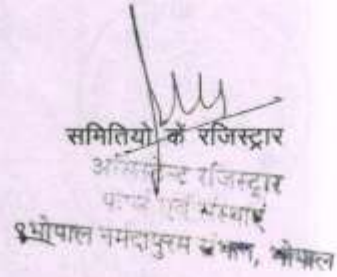 समितियों के रजिस्ट्रार
असिस्टेन्ट रजिस्ट्रार
फर्म्स एवं संस्थाएं
भोपाल नर्मदापुरम संभाग, भोपाल